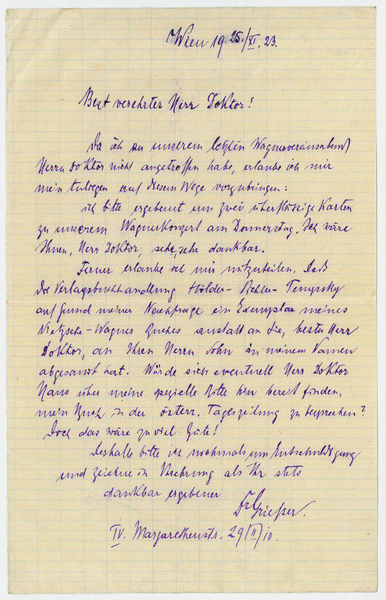 Wien 19 25./XI. 23.
Best verehrter Herr Doktor!
Da ich zu unserem letzten Wagnervereinsabend
Herrn Doktor nicht angetroffen habe, erlaube ich mir
mein Anliegen auf diesem Wege vorzubringen:
ich bitte ergebenst um zwei überflüssige Karten
zu unserem Wagnerkonzert am Donnerstag. Ich wäre
Ihnen, Herr Doktor, sehr, sehr dankbar.
Ferner erlaube ich mir mitzuteilen, daß
die Verlagsbuchhandlung Hölder-Pichler-Tempsky
auf Grund meiner Nachfrage ein Exemplar meines
Nietzsche-Wagner Buches anstatt an Sie, bester Herr
Doktor, an Ihren Herrn Sohn in meinem Namen
abgesandt hat. Würde sich eventuell Herr Doktor
Hans über meine spezielle Bitte hin bereit finden,
mein Buch in der österr. Tageszeitung zu besprechen?
Doch das wäre zu viel Güte!
Deshalb bitte ich nochmals um Entschuldigung
und zeichne in Verehrung als Ihr stets
dankbar ergebener
Dr Grießer.
IV. Margaretenstr. 29/II/10.